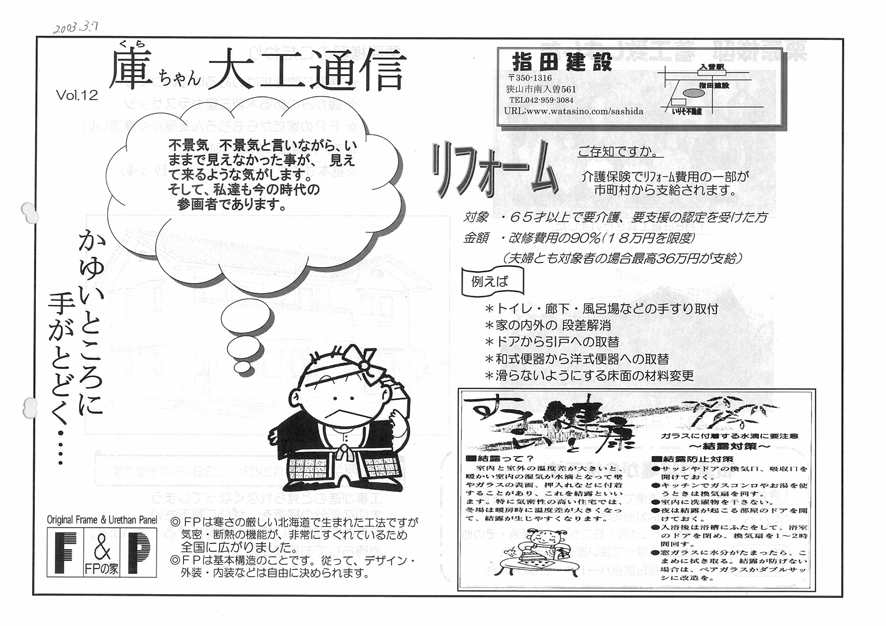 2003.3.7
くら
庫ちゃん 大工通信
Vol.12
不景気 不景気と言いながら、い
ままで見えなかった事が、 見え
て来るような気がします。
そして、私達も今の時代の
参画者であります。
かゆいところに
手がとどく‥‥
Original Frame & Urethan Panel
F & P
FPの家
◎FPは寒さの厳しい北海道で生まれた工法ですが
気密・断熱の機能が、非常にすぐれているため
全国に広がりました。
◎FPは基本構造のことです。従って、デザイン・
外装・内装などは自由に決められます。
指田建設
〒350-1316
狭山市南入曽561
TEL042-959-3084
URL:www.watasino.com/sashida
入曽駅
指田建設
いりそ不動産
リフォーム
ご存知ですか。
介護保険でリフォーム費用の一部が
市町村から支給されます。
対象 ・65才以上で要介護、要支援の認定を受けた方
金額 ・改修費用の90%(18万円を限度)
(夫婦とも対象者の場合最高36万円が支給)
例えば
＊トイレ・廊下・風呂場などの手すり取付
＊家の内外の 段差解消
＊ドアから引戸への取替
＊和式便器から洋式便器への取替
＊滑らないようにする床面の材料変更
健康
ガラスに付着する水滴に要注意
～結露対策～
■結露って？
室内と室外の温度差が大きいと、
暖かい室内の湿気が水滴となって壁
やガラスの表面、押入れなどに付着
することがあり、これを結露といい
ます。特に気密性の高い住宅では、
冬場は暖房時に温度差が大きくなっ
て、結露が生じやすくなります。
■結露防止対策
●サッシやドアの換気口、吸収口を
開けておく。
●キッチンでガスコンロやお湯を使
うときは換気扇を回す。
●室内に洗濯物を干さない。
●夜は結露が起こる部屋のドアを開
けておく。
●入浴後は浴槽にふたをして、浴室
のドアを閉め、換気扇を1～2時
間回す。
●窓ガラスに水分がたまったら、こ
まめに拭き取る。結露が防げない
場合は、ペアガラスかダブルサッ
シに改造を。